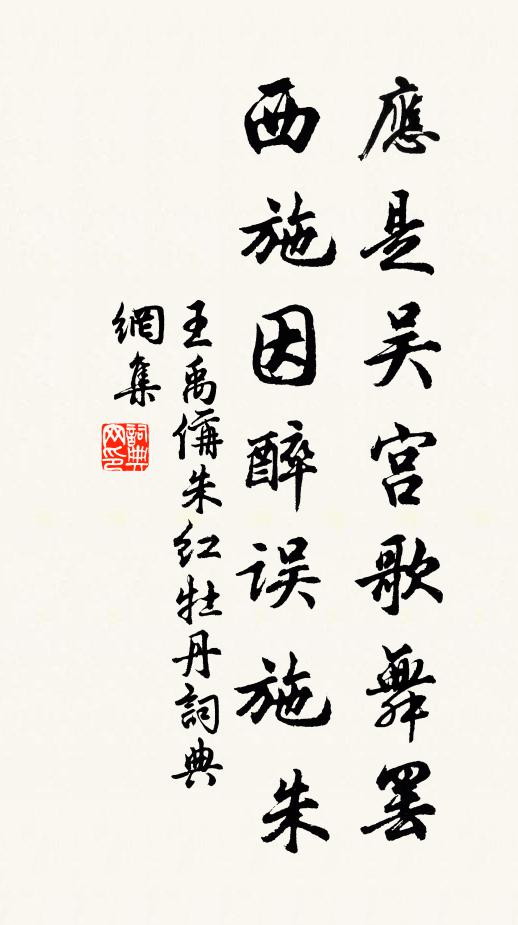 應是吴宫歌舞罢
西施因醉误施朱
王禹偁朱红牡丹詞典
網集
詞典
网印